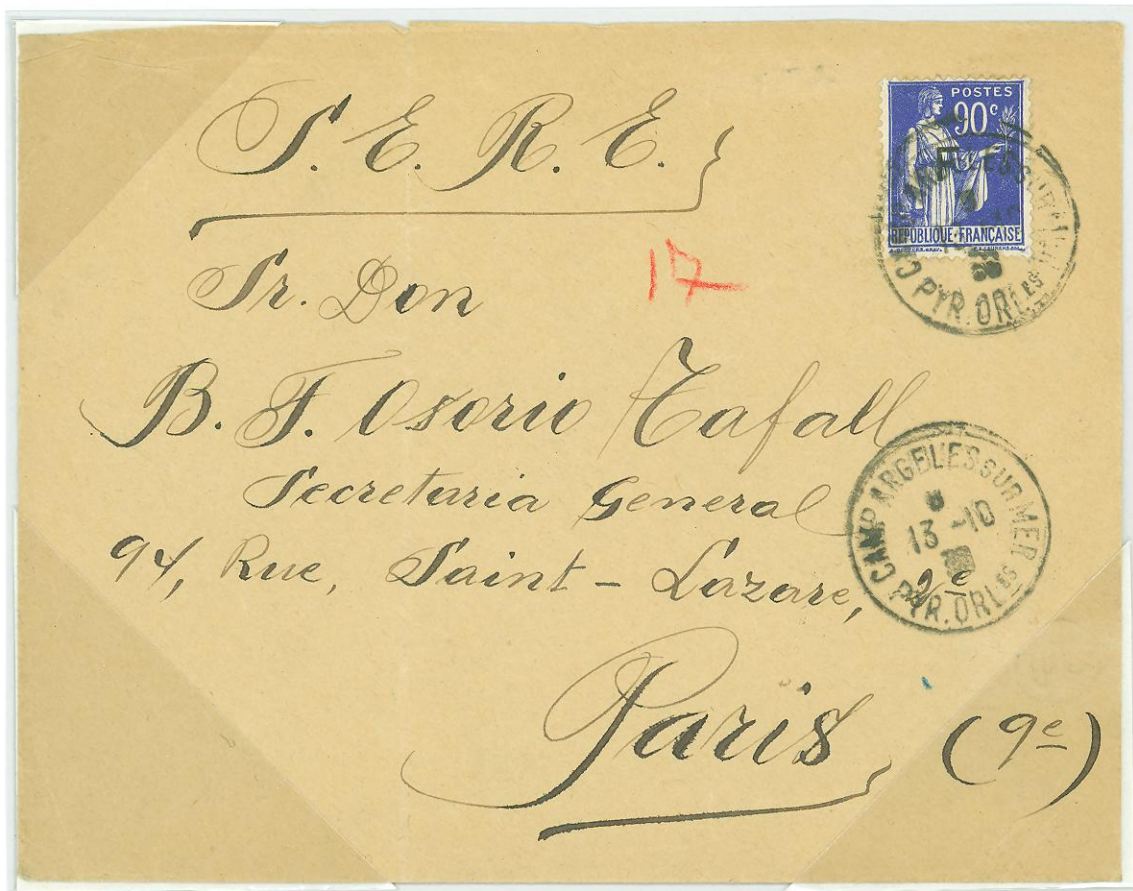 S. E. R. E.
POSTES
90c
REPUBLIQUE · FRANÇAISE
PYR. ORLES
17
Sr. Don
B. F. Osorio Tafall
Secretaria General
94, Rue, Saint-Lazare, 2e
CAMP ARGELES SUR MER
13 -10
PYR. ORLES
Paris (9e)